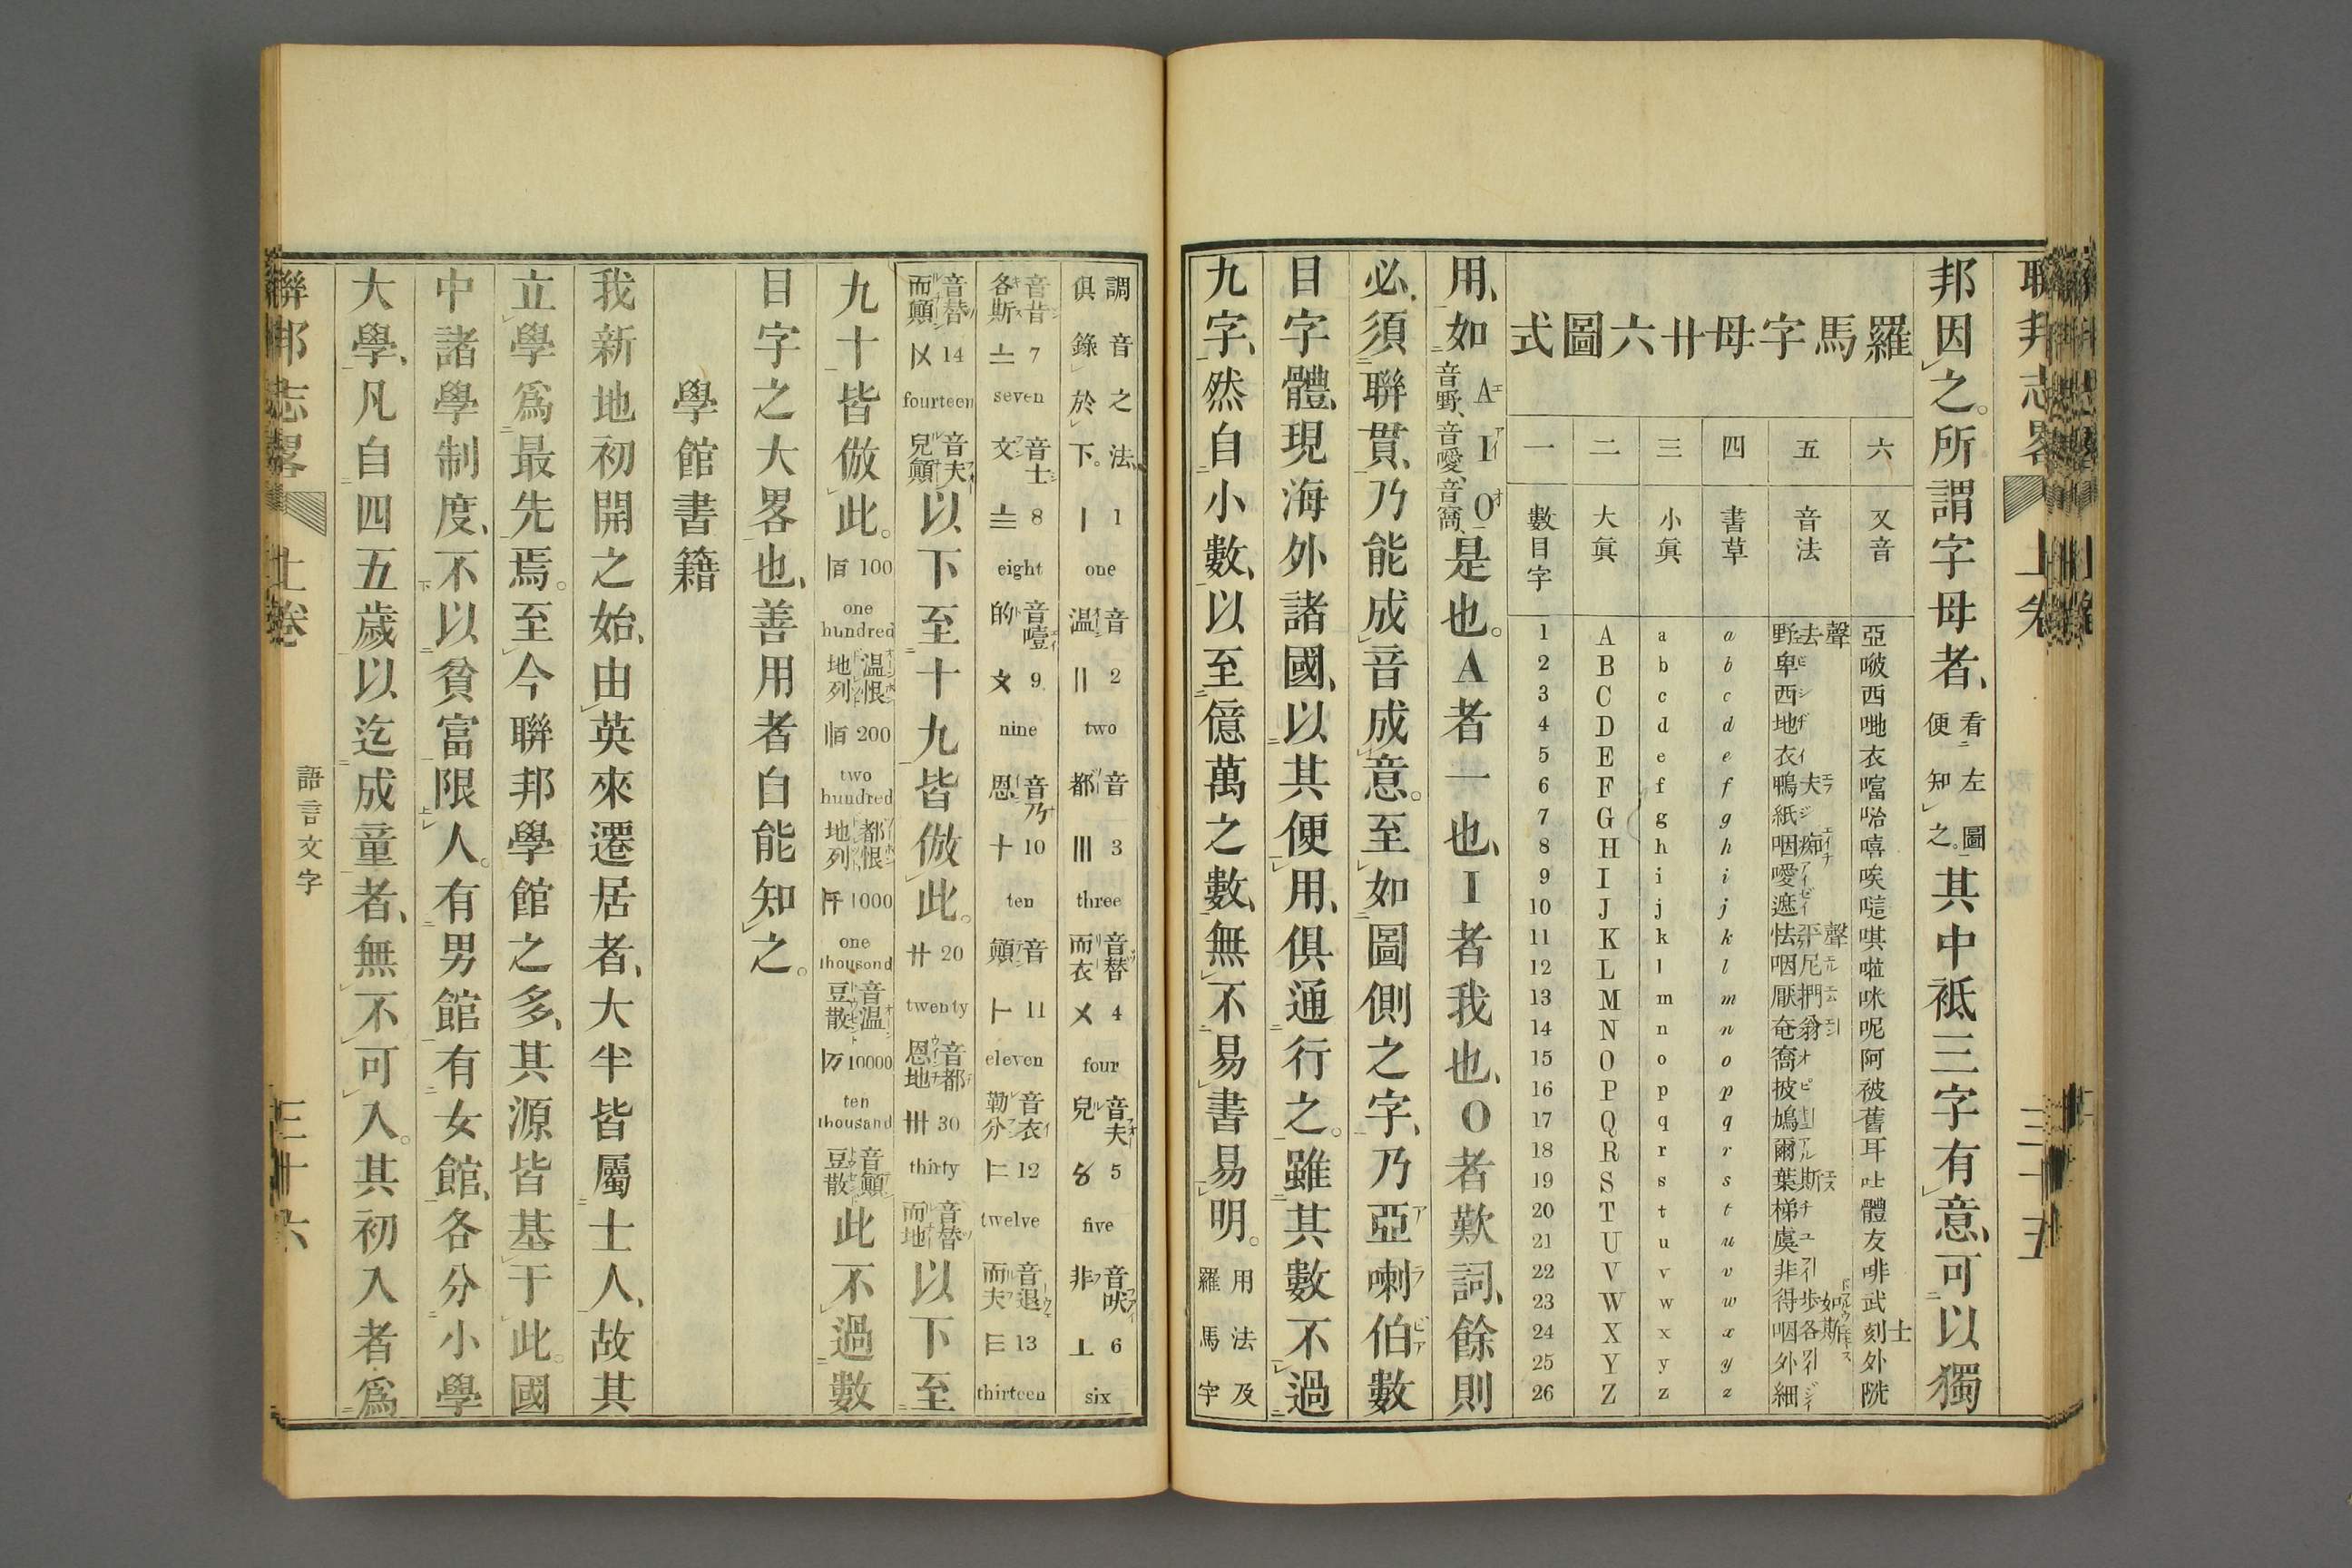 聯邦志畧 上卷 三十五
邦因之。所謂字母者、看左圖便知之。其中祗三字有意、可以獨
羅馬字母廿六圖式
六 又音 亞 啵 西 哋 衣 噹 哈 嘻 唉 𠸄 唭 𠺘 咪 呢 阿 被 舊 耳 𠮟 體 友 啡 武 刻士 外 㳸
五 音法 野法聲 卑 西 地 衣 鴨夫 紙 咽痴 噯 遮 怯平聲 咽尼 厭捫 奄翁 窩 披 鳩 爾 葉斯 梯 虞 非 得步如 咽各斯 外 細
四 書草 a b c d e f g h i j k l m n o p q r s t u v w x y z
三 小眞 a b c d e f g h i j k l m n o p q r s t u v w x y z
二 大眞 A B C D E F G H I J K L M N O P Q R S T U V W X Y Z
一 數目字 1 2 3 4 5 6 7 8 9 10 11 12 13 14 15 16 17 18 19 20 21 22 23 24 25 26
用、如A音野、I音噯、O音窩、是也。A者一也、I者我也、O者歎詞、餘則
必須聯貫、乃能成音成意。至如圖側之字、乃亞喇伯數
目字體、現海外諸國、以其便用、俱通行之。雖其數不過
九字、然自小數、以至億萬之數、無不易書易明。用法及羅馬字
調音之法、俱錄於下。〡 1 one 音温 〢 2 two 音都 〣 3 three 音替而衣 〤 4 four 音夫兒 〥 5 five 音吠非 〦 6 six
音昔各斯 〧 7 seven 音士文 〨 8 eight 音噎的 〩 9 nine 音乃恩 十 10 ten 音顛 11 eleven 音衣勒分 12 twelve 音退而夫 13 thirteen
音替而顛 14 fourteen 音夫兒顛 以下至十九、皆倣此。廿 20 twenty 音都恩地 卅 30 thirty 音替而地 以下至
九十皆倣此。100 one hundred 温恨地列 200 two hundred 都恨地列 1000 one thousond 音温豆散 10000 ten thousand 音顛豆散 此不過數
目字之大畧也、善用者自能知之。
學館書籍
我新地初開之始、由英來遷居者、大半皆屬士人、故其
立學爲最先焉。至今聯邦學館之多、其源皆基于此。國
中諸學制度、不以貧富限人。有男館有女館、各分小學
大學、凡自四五歲以迄成童者、無不可入。其初入者、爲
聯邦志畧 上卷 語言文字 三十六